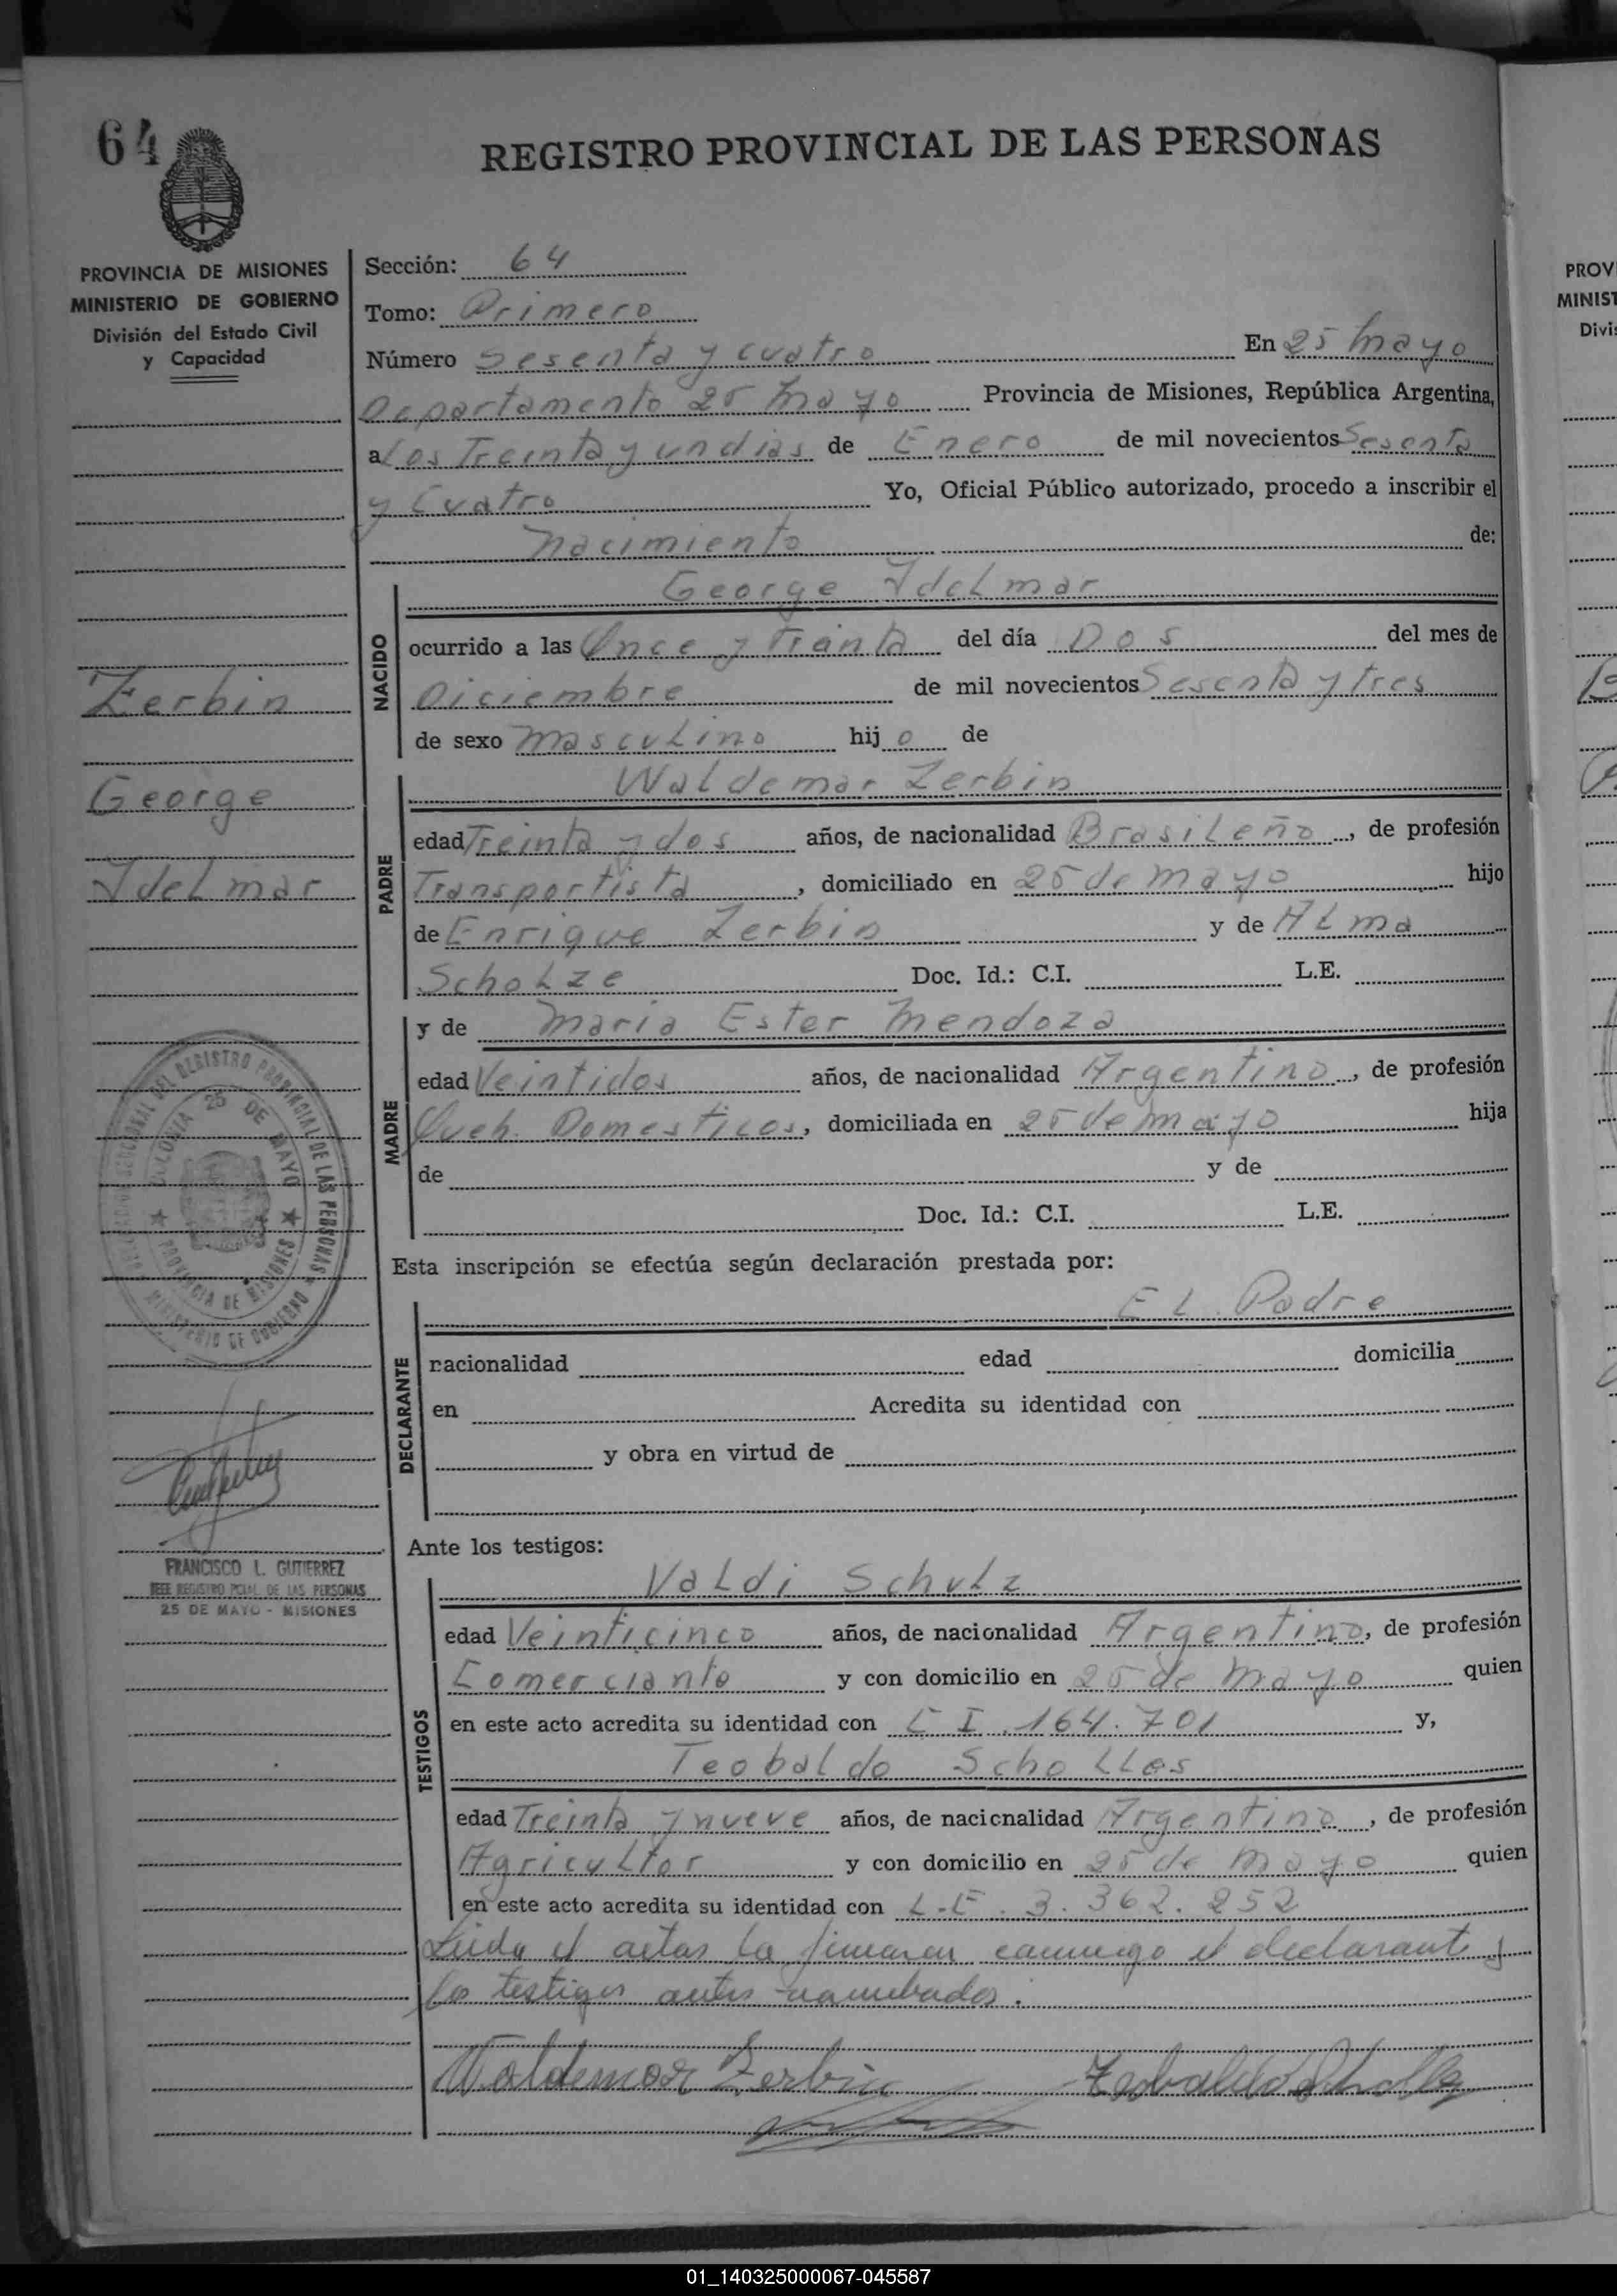 64
REGISTRO PROVINCIAL DE LAS PERSONAS
PROVINCIA DE MISIONES
MINISTERIO DE GOBIERNO
División del Estado Civil
y Capacidad
Sección: 64
Tomo: Primero
Número Sesenta y cuatro En 25 Mayo
Departamento 25 Mayo Provincia de Misiones, República Argentina,
a los Treinta y un dias de Enero de mil novecientos Sesenta
y Cuatro Yo, Oficial Público autorizado, procedo a inscribir el
Nacimiento de:
George Idelmar
NACIDO
ocurrido a las Once y Trainta del día Dos del mes de
Diciembre de mil novecientos Sesenta y tres
de sexo Masculino hijo de
Zerbin
George
Idelmar
Waldemar Zerbin
PADRE
edad Treinta y dos años, de nacionalidad Brasileño, de profesión
Transportista, domiciliado en 25 de Mayo hijo
de Enrique Zerbin y de Alma
Scholze Doc. Id.: C.I. L.E.
y de Maria Ester Mendoza
MADRE
edad Veintidos años, de nacionalidad Argentino, de profesión
Queh. Domesticos, domiciliada en 25 de Mayo hija
de y de
Doc. Id.: C.I. L.E.
REGISTRO PROVINCIAL DE LAS PERSONAS
COLONIA 25 DE MAYO
PROVINCIA DE MISIONES
MINISTERIO DE GOBIERNO
Esta inscripción se efectúa según declaración prestada por:
El Padre
DECLARANTE
nacionalidad edad domicilia
en Acredita su identidad con
y obra en virtud de
FRANCISCO L. GUTIERREZ
JEFE REGISTRO PCIAL. DE LAS PERSONAS
25 DE MAYO - MISIONES
Ante los testigos:
Valdi Schulz
TESTIGOS
edad Veinticinco años, de nacionalidad Argentino, de profesión
Comerciante y con domicilio en 25 de Mayo quien
en este acto acredita su identidad con C I. 164.701 y,
Teobaldo Scholles
edad Treinta y nueve años, de nacionalidad Argentino, de profesión
Agricultor y con domicilio en 25 de Mayo quien
en este acto acredita su identidad con L.E. 3.362.252
Leida el actas la firmaran conmigo el declarante y
los testigos antes nombrados.
Waldemar Zerbin Teobaldo Scholles
PROV
MINIST
Divi
01_140325000067-045587